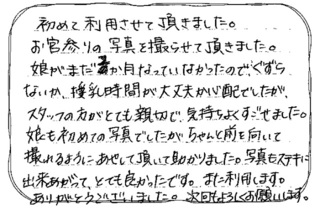 初めて利用させて頂きました。
お宮参りの写真を撮らせて頂きました。
娘がまだか月なっていなかったので、ぐずら
ないか、授乳時間が大丈夫か心配でしたが、
スタッフの方がとても親切で、気持ちよくすごせました。
娘も初めての写真でしたが、ちゃんと前を向いて
撮れるようにあやして頂いて助かりました。写真もステキに
出来あがって、とても良かったです。また利用します。
ありがとうございました。次回もよろしくお願いします。